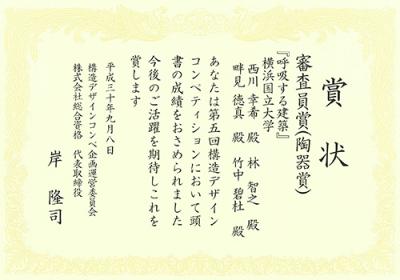 賞状
審査員賞(陶器賞)
『呼吸する建築』
横浜国立大学
西川 幸希 殿 林 智之 殿
畔見 徳真 殿 竹中 碧杜 殿
あなたは第五回構造デザイン
コンペティションにおいて頭
書の成績をおさめられました
今後のご活躍を期待しこれを
賞します
平成三十年九月八日
構造デザインコンペ企画運営委員会
株式会社総合資格 代表取締役
岸 隆司